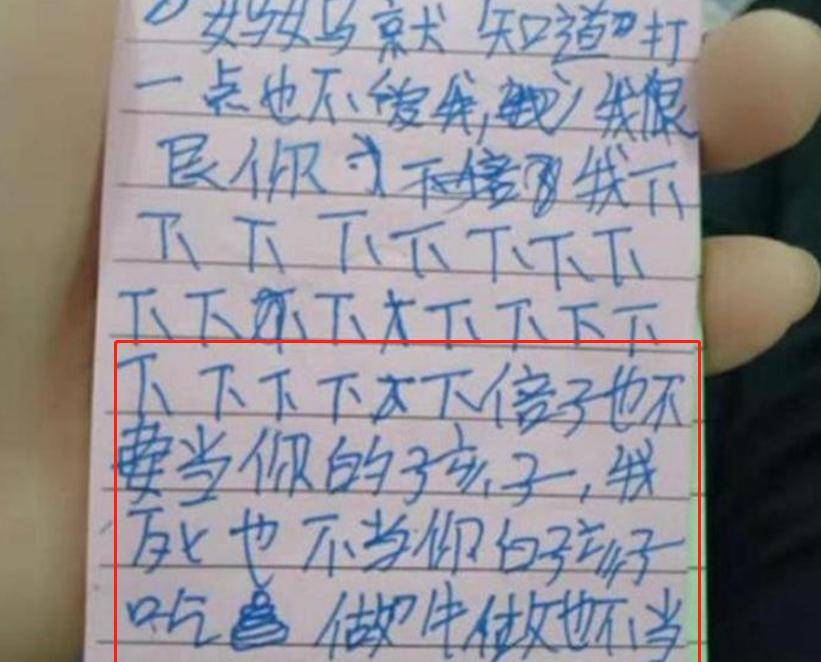 妈妈就知道打
一点也不爱我,我很
艮你 不 我下
下下下下下下下
下下下下下下下下
下下下下下下倍子也不
要当你的孩子,我
死也不当你的孩子
吃 做牛做 也不当